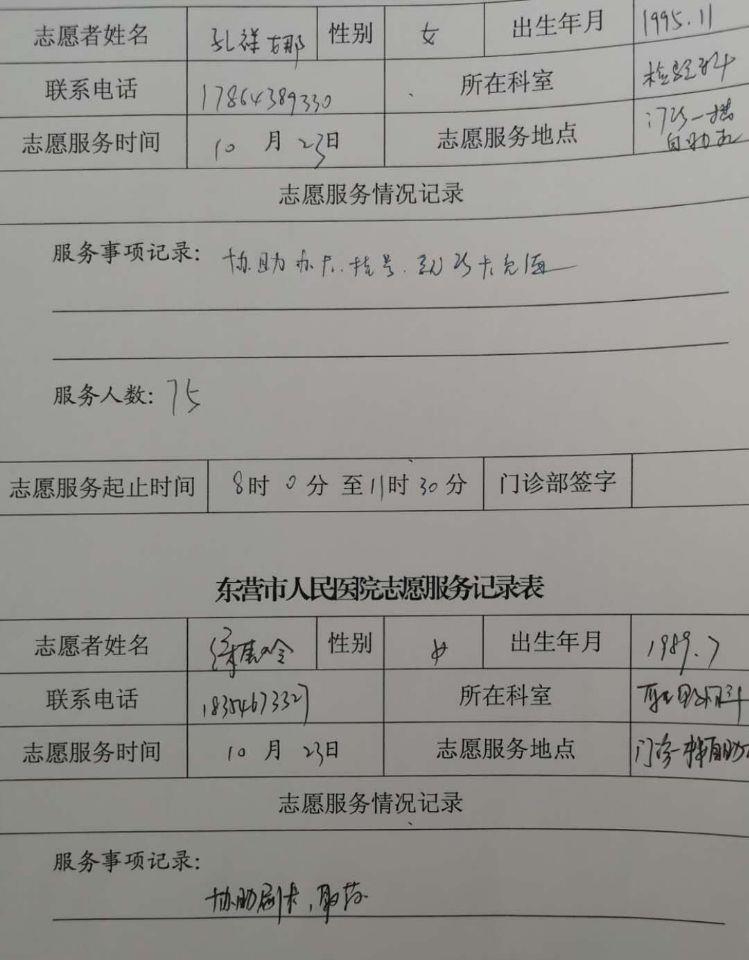 志愿者姓名 孔祥娜 性别 女 出生年月 1995.11
联系电话 17864389330 所在科室 检验科
志愿服务时间 10 月 23日 志愿服务地点 门诊一楼
自助机
志愿服务情况记录
服务事项记录: 协助办卡.挂号.就诊卡充值
服务人数: 75
志愿服务起止时间 8时 0分 至11时30分 门诊部签字
东营市人民医院志愿服务记录表
志愿者姓名 性别 女 出生年月 1989.7
联系电话 18354673327 所在科室
志愿服务时间 10 月 23日 志愿服务地点 门诊一楼自助
志愿服务情况记录
服务事项记录:
协助刷卡,取药